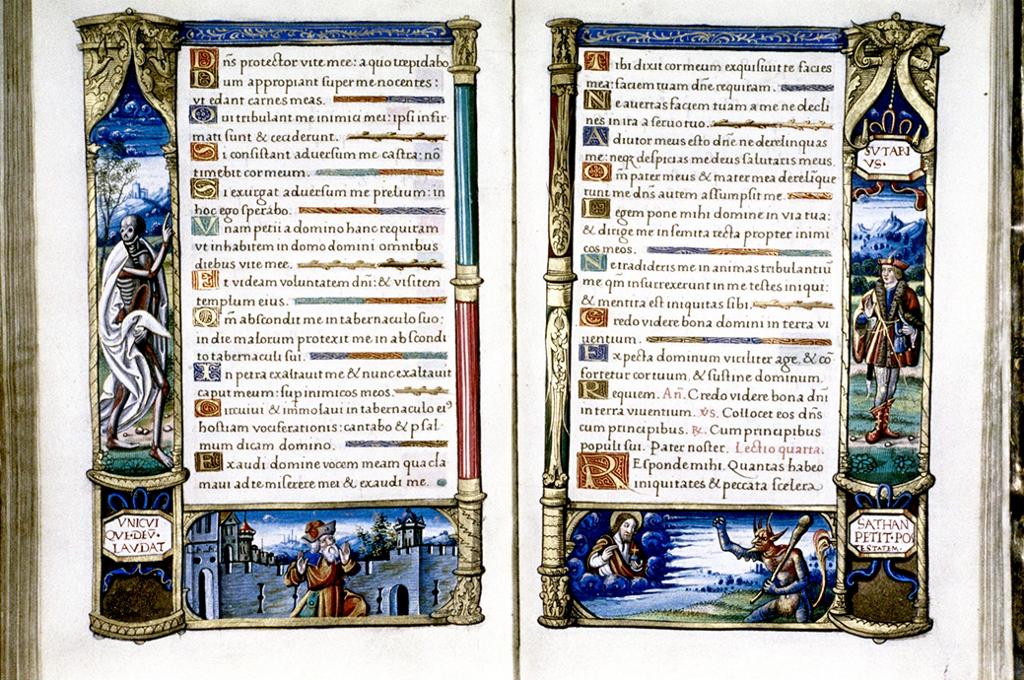 Dñs protector vite mee: a quo trepidabo
Dum appropiant super me nocentes:
vt edant carnes meas.
Qui tribulant me inimici mei: ipsi infir
mati sunt & ceciderunt.
Si consistant aduersum me castra: nō
timebit cor meum.
Si exurgat aduersum me prelium: in
hoc ego sperabo.
Vnam petii a domino hanc requiram
vt inhabitem in domo domini omnibus
diebus vite mee.
Et videam voluntatem dñi: & visitem
templum eius.
Qm̄ abscondit me in tabernaculo suo:
in die malorum protexit me in abscondi
to tabernaculi sui.
In petra exaltauit me & nunc exaltauit
caput meum: sup inimicos meos.
Circuiui & immolaui in tabernaculo ei⁹
hostiam vociferationis: cantabo & psal
mum dicam domino.
Exaudi domine vocem meam qua cla
maui ad te miserere mei & exaudi me.
VNICVI
QVE·DEV̄·
LAVDAT
Tibi dixit cor meum exquisiuit te facies
mea: faciem tuam dñe requiram.
Ne auertas faciem tuam a me ne decli
nes in ira a seruo tuo.
Adiutor meus esto dñe ne derelinquas
me: neqȝ despicias me deus salutaris meus.
Qm̄ pater meus & mater mea dereliq̄ue
runt me dñs autem assumpsit me.
Legem pone mihi domine in via tua:
& dirige me in semita recta propter inimi
cos meos.
Ne tradideris me in animas tribulantiū
me qm̄ insurrexerunt in me testes iniqui:
& mentita est iniquitas sibi.
Credo videre bona domini in terra vi
uentium.
Expecta dominum viriliter age, & cō
fortetur cor tuum, & sustine dominum.
Requiem. Añ. Credo videre bona dñi
in terra viuentium. ℣s. Collocet eos dñs
cum principibus. ℞. Cum principibus
populi sui. Pater noster. Lectio quarta.
REsponde mihi. Quantas habeo
iniquitates & peccata scelera
SVTARI
VS·
SATHAN
PETIT·PO
ESTATEM·